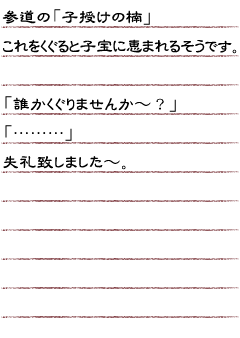 参道の「子授けの楠」
これをくぐると子宝に恵まれるそうです。
「誰かくぐりませんか～？」
「………」
失礼致しました～。